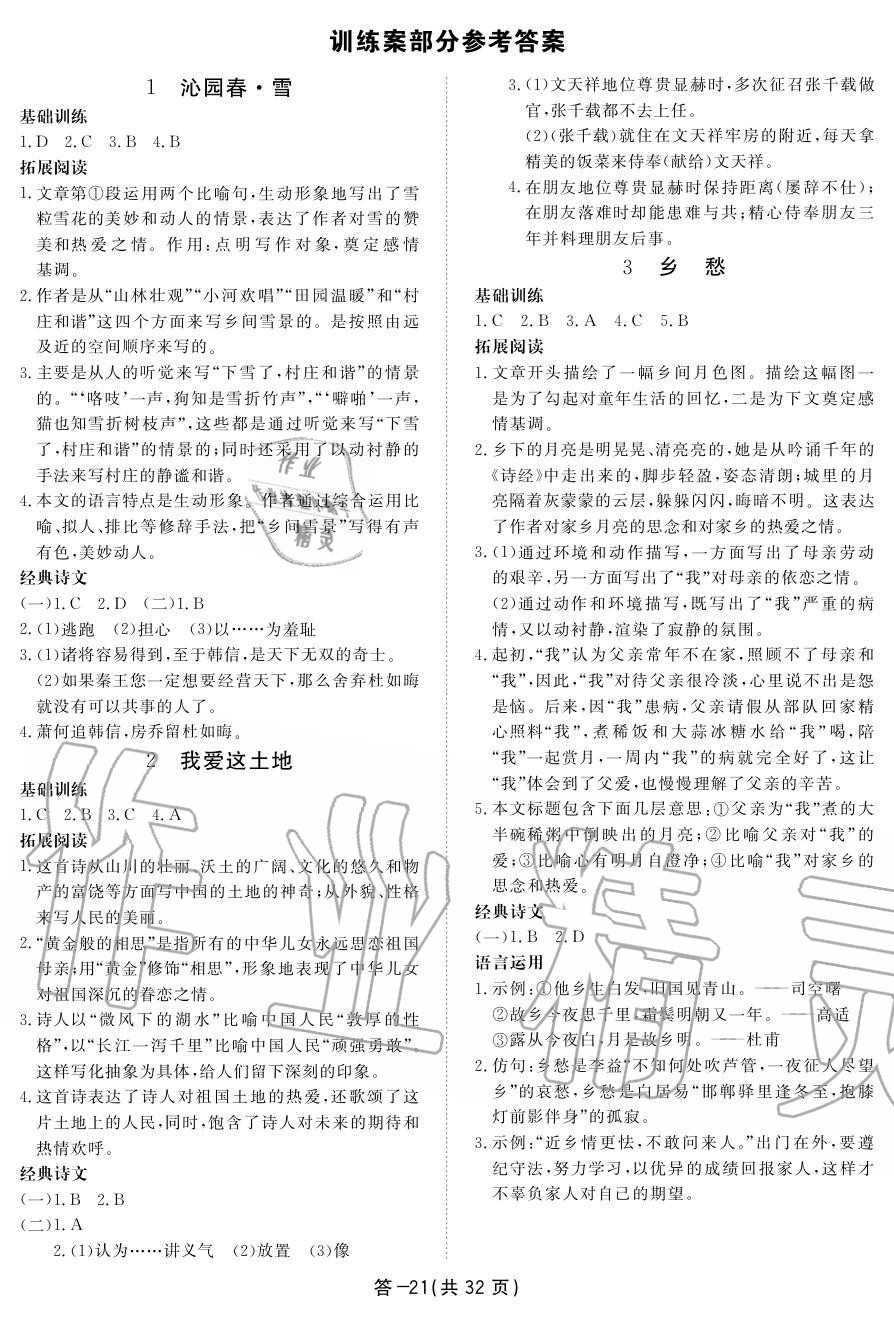 训练案部分参考答案
1 沁园春·雪
基础训练
1.D 2.C 3.B 4.B
拓展阅读
1.文章第①段运用两个比喻句,生动形象地写出了雪
粒雪花的美妙和动人的情景,表达了作者对雪的赞
美和热爱之情。作用:点明写作对象,奠定感情
基调。
2.作者是从“山林壮观”“小河欢唱”“田园温暖”和“村
庄和谐”这四个方面来写乡间雪景的。是按照由远
及近的空间顺序来写的。
3.主要是从人的听觉来写“下雪了,村庄和谐”的情景
的。“‘咯吱’一声,狗知是雪折竹声”,“‘噼啪’一声,
猫也知雪折树枝声”,这些都是通过听觉来写“下雪
了,村庄和谐”的情景的;同时还采用了以动衬静的
手法来写村庄的静谧和谐。
4.本文的语言特点是生动形象。作者通过综合运用比
喻、拟人、排比等修辞手法,把“乡间雪景”写得有声
有色,美妙动人。
经典诗文
(一)1.C 2.D (二)1.B
2.(1)逃跑 (2)担心 (3)以……为羞耻
3.(1)诸将容易得到,至于韩信,是天下无双的奇士。
(2)如果秦王您一定想要经营天下,那么舍弃杜如晦
就没有可以共事的人了。
4.萧何追韩信,房乔留杜如晦。
2 我爱这土地
基础训练
1.C 2.B 3.C 4.A
拓展阅读
1.这首诗从山川的壮丽、沃土的广阔、文化的悠久和物
产的富饶等方面写中国的土地的神奇;从外貌、性格
来写人民的美丽。
2.“黄金般的相思”是指所有的中华儿女永远思恋祖国
母亲;用“黄金”修饰“相思”,形象地表现了中华儿女
对祖国深沉的眷恋之情。
3.诗人以“微风下的湖水”比喻中国人民“敦厚的性
格”,以“长江一泻千里”比喻中国人民“顽强勇敢”。
这样写化抽象为具体,给人们留下深刻的印象。
4.这首诗表达了诗人对祖国土地的热爱,还歌颂了这
片土地上的人民,同时,饱含了诗人对未来的期待和
热情欢呼。
经典诗文
(一)1.B 2.B
(二)1.A
2.(1)认为……讲义气 (2)放置 (3)像
3.(1)文天祥地位尊贵显赫时,多次征召张千载做
官,张千载都不去上任。
(2)(张千载)就住在文天祥牢房的附近,每天拿
精美的饭菜来侍奉(献给)文天祥。
4.在朋友地位尊贵显赫时保持距离(屡辞不仕);
在朋友落难时却能患难与共;精心侍奉朋友三
年并料理朋友后事。
3 乡愁
基础训练
1.C 2.B 3.A 4.C 5.B
拓展阅读
1.文章开头描绘了一幅乡间月色图。描绘这幅图一
是为了勾起对童年生活的回忆,二是为下文奠定感
情基调。
2.乡下的月亮是明晃晃、清亮亮的,她是从吟诵千年的
《诗经》中走出来的,脚步轻盈,姿态清朗;城里的月
亮隔着灰蒙蒙的云层,躲躲闪闪,晦暗不明。这表达
了作者对家乡月亮的思念和对家乡的热爱之情。
3.(1)通过环境和动作描写,一方面写出了母亲劳动
的艰辛,另一方面写出了“我”对母亲的依恋之情。
(2)通过动作和环境描写,既写出了“我”严重的病
情,又以动衬静,渲染了寂静的氛围。
4.起初,“我”认为父亲常年不在家,照顾不了母亲和
“我”,因此,“我”对待父亲很冷淡,心里说不出是怨
是恼。后来,因“我”患病,父亲请假从部队回家精
心照料“我”,煮稀饭和大蒜冰糖水给“我”喝,陪
“我”一起赏月,一周内“我”的病就完全好了,这让
“我”体会到了父爱,也慢慢理解了父亲的辛苦。
5.本文标题包含下面几层意思:①父亲为“我”煮的大
半碗稀粥中倒映出的月亮;②比喻父亲对“我”的
爱;③比喻心有明月自澄净;④比喻“我”对家乡的
思念和热爱。
经典诗文
(一)1.B 2.D
语言运用
1.示例:①他乡生白发,旧国见青山。——司空曙
②故乡今夜思千里,霜鬓明朝又一年。——高适
③露从今夜白,月是故乡明。——杜甫
2.仿句:乡愁是李益“不知何处吹芦管,一夜征人尽望
乡”的哀愁,乡愁是白居易“邯郸驿里逢冬至,抱膝
灯前影伴身”的孤寂。
3.示例:“近乡情更怯,不敢问来人。”出门在外,要遵
纪守法,努力学习,以优异的成绩回报家人,这样才
不辜负家人对自己的期望。
答-21(共32页)
作业精灵